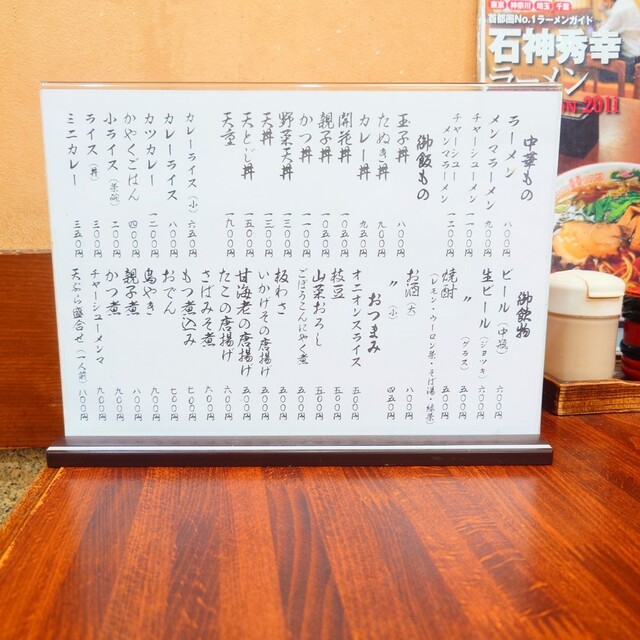 中華もの
ラーメン 八〇〇円
メンマラーメン 九〇〇円
チャーシューメン 一一〇〇円
チャーシューメンマラーメン 一二〇〇円
御飯もの
玉子丼 八〇〇円
たぬき丼 九〇〇円
カレー丼 九五〇円
開花丼 一〇五〇円
親子丼 一〇五〇円
かつ丼 一一〇〇円
野菜天丼 一三〇〇円
天丼 一三〇〇円
天とじ丼 一五〇〇円
天重 一九〇〇円
カレーライス(小) 六五〇円
カレーライス 八〇〇円
カツカレー 一二〇〇円
かやくごはん 四〇〇円
小ライス(茶碗) 二〇〇円
ライス(丼) 三〇〇円
ミニカレー 三五〇円
御飲物
ビール(中瓶) 六〇〇円
生ビール(ジョッキ) 六〇〇円
〃(グラス) 五〇〇円
焼酎 五〇〇円
(レモン・ウーロン茶・そば湯・緑茶)
お酒(大) 八〇〇円
〃(小) 四五〇円
おつまみ
オニオンスライス 五〇〇円
枝豆 五〇〇円
山菜おろし 五〇〇円
ごぼうとこんにゃく煮 五〇〇円
板わさ 五〇〇円
いかげその唐揚げ 五〇〇円
甘海老の唐揚げ 五〇〇円
たこの唐揚げ 六〇〇円
さばみそ煮 六〇〇円
もつ煮込み 七〇〇円
おでん 七〇〇円
鳥やき 九〇〇円
親子煮 八〇〇円
かつ煮 九〇〇円
チャーシューメンマ 九〇〇円
天ぷら盛合せ(一人前) 一八〇〇円
東京 神奈川 埼玉 千葉
首都圏No.1ラーメンガイド
石神秀幸
ラーメン
2011